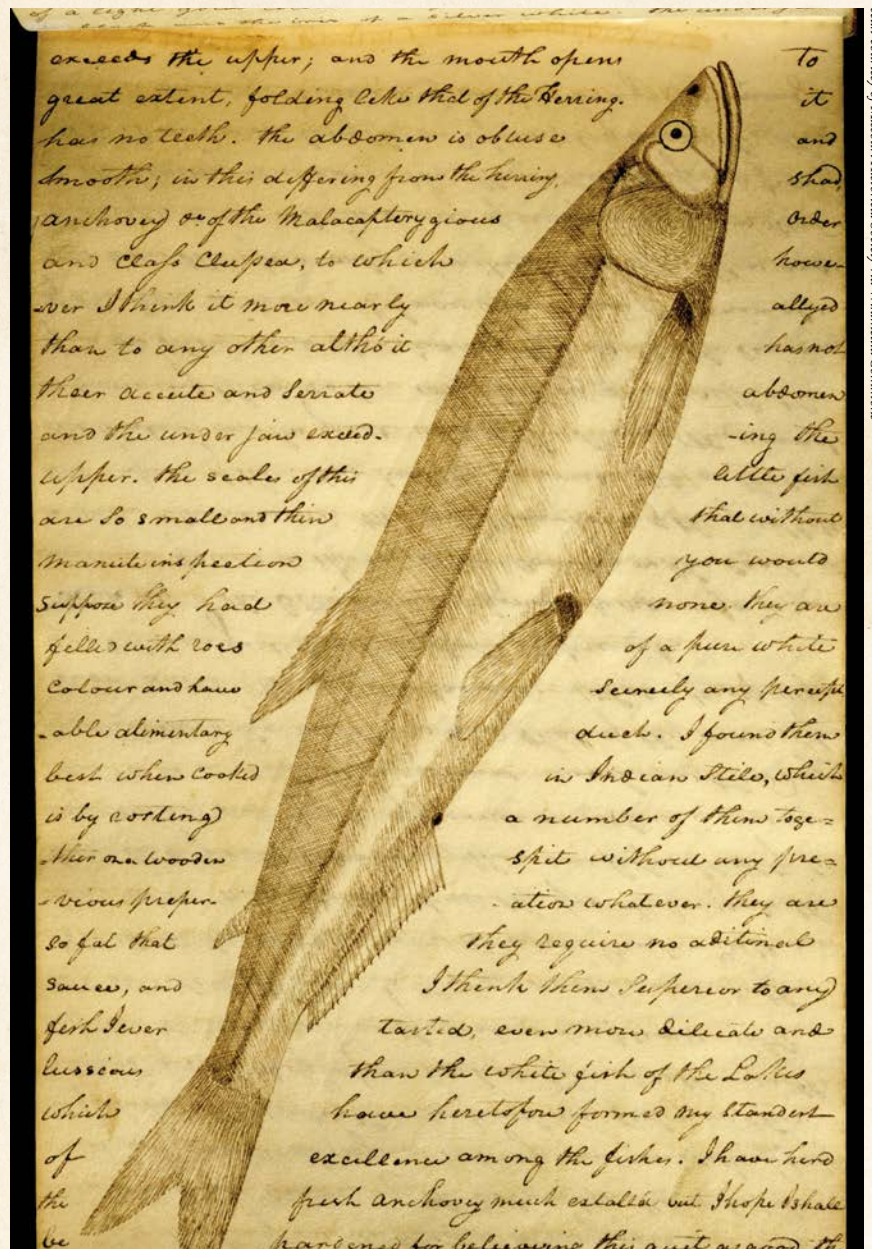 of a light
of a silver white. the
exceeds the upper; and the mouth opens To
great extent, folding like that of the Herring. it
has no teeth. the abdomen is obtuse and
smooth; in this differing from the herring, shad,
anchovey &c of the Malacapterygious Order
and Class Clupea, to which howe-
-ver I think it more nearly allyed
than to any other altho' it has not
their accute and serrate abdomen
and the under jaw exceed- -ing the
upper. the scales of this little fish
are so small and thin that without
manute inspection you would
suppose they had none. they are
filled with roes of a pure white
colour and have scercely any percept
-able alimentary duct. I found them
best when cooked in Indian stile, which
is by rosting a number of them toge=
-ther on a wooden spit without any pre=
-vious preper- -ation whatever. they are
so fat that they require no aditinal
sauce, and I think them superior to any
fish I ever tasted, even more dilicate and
lussious than the white fish of the Lakes
which have heretofore formed my standart
of excellence among the fishes. I have herd
the fresh anchovey much extolled but I hope I shall
be pardoned for believing this quite as good. the